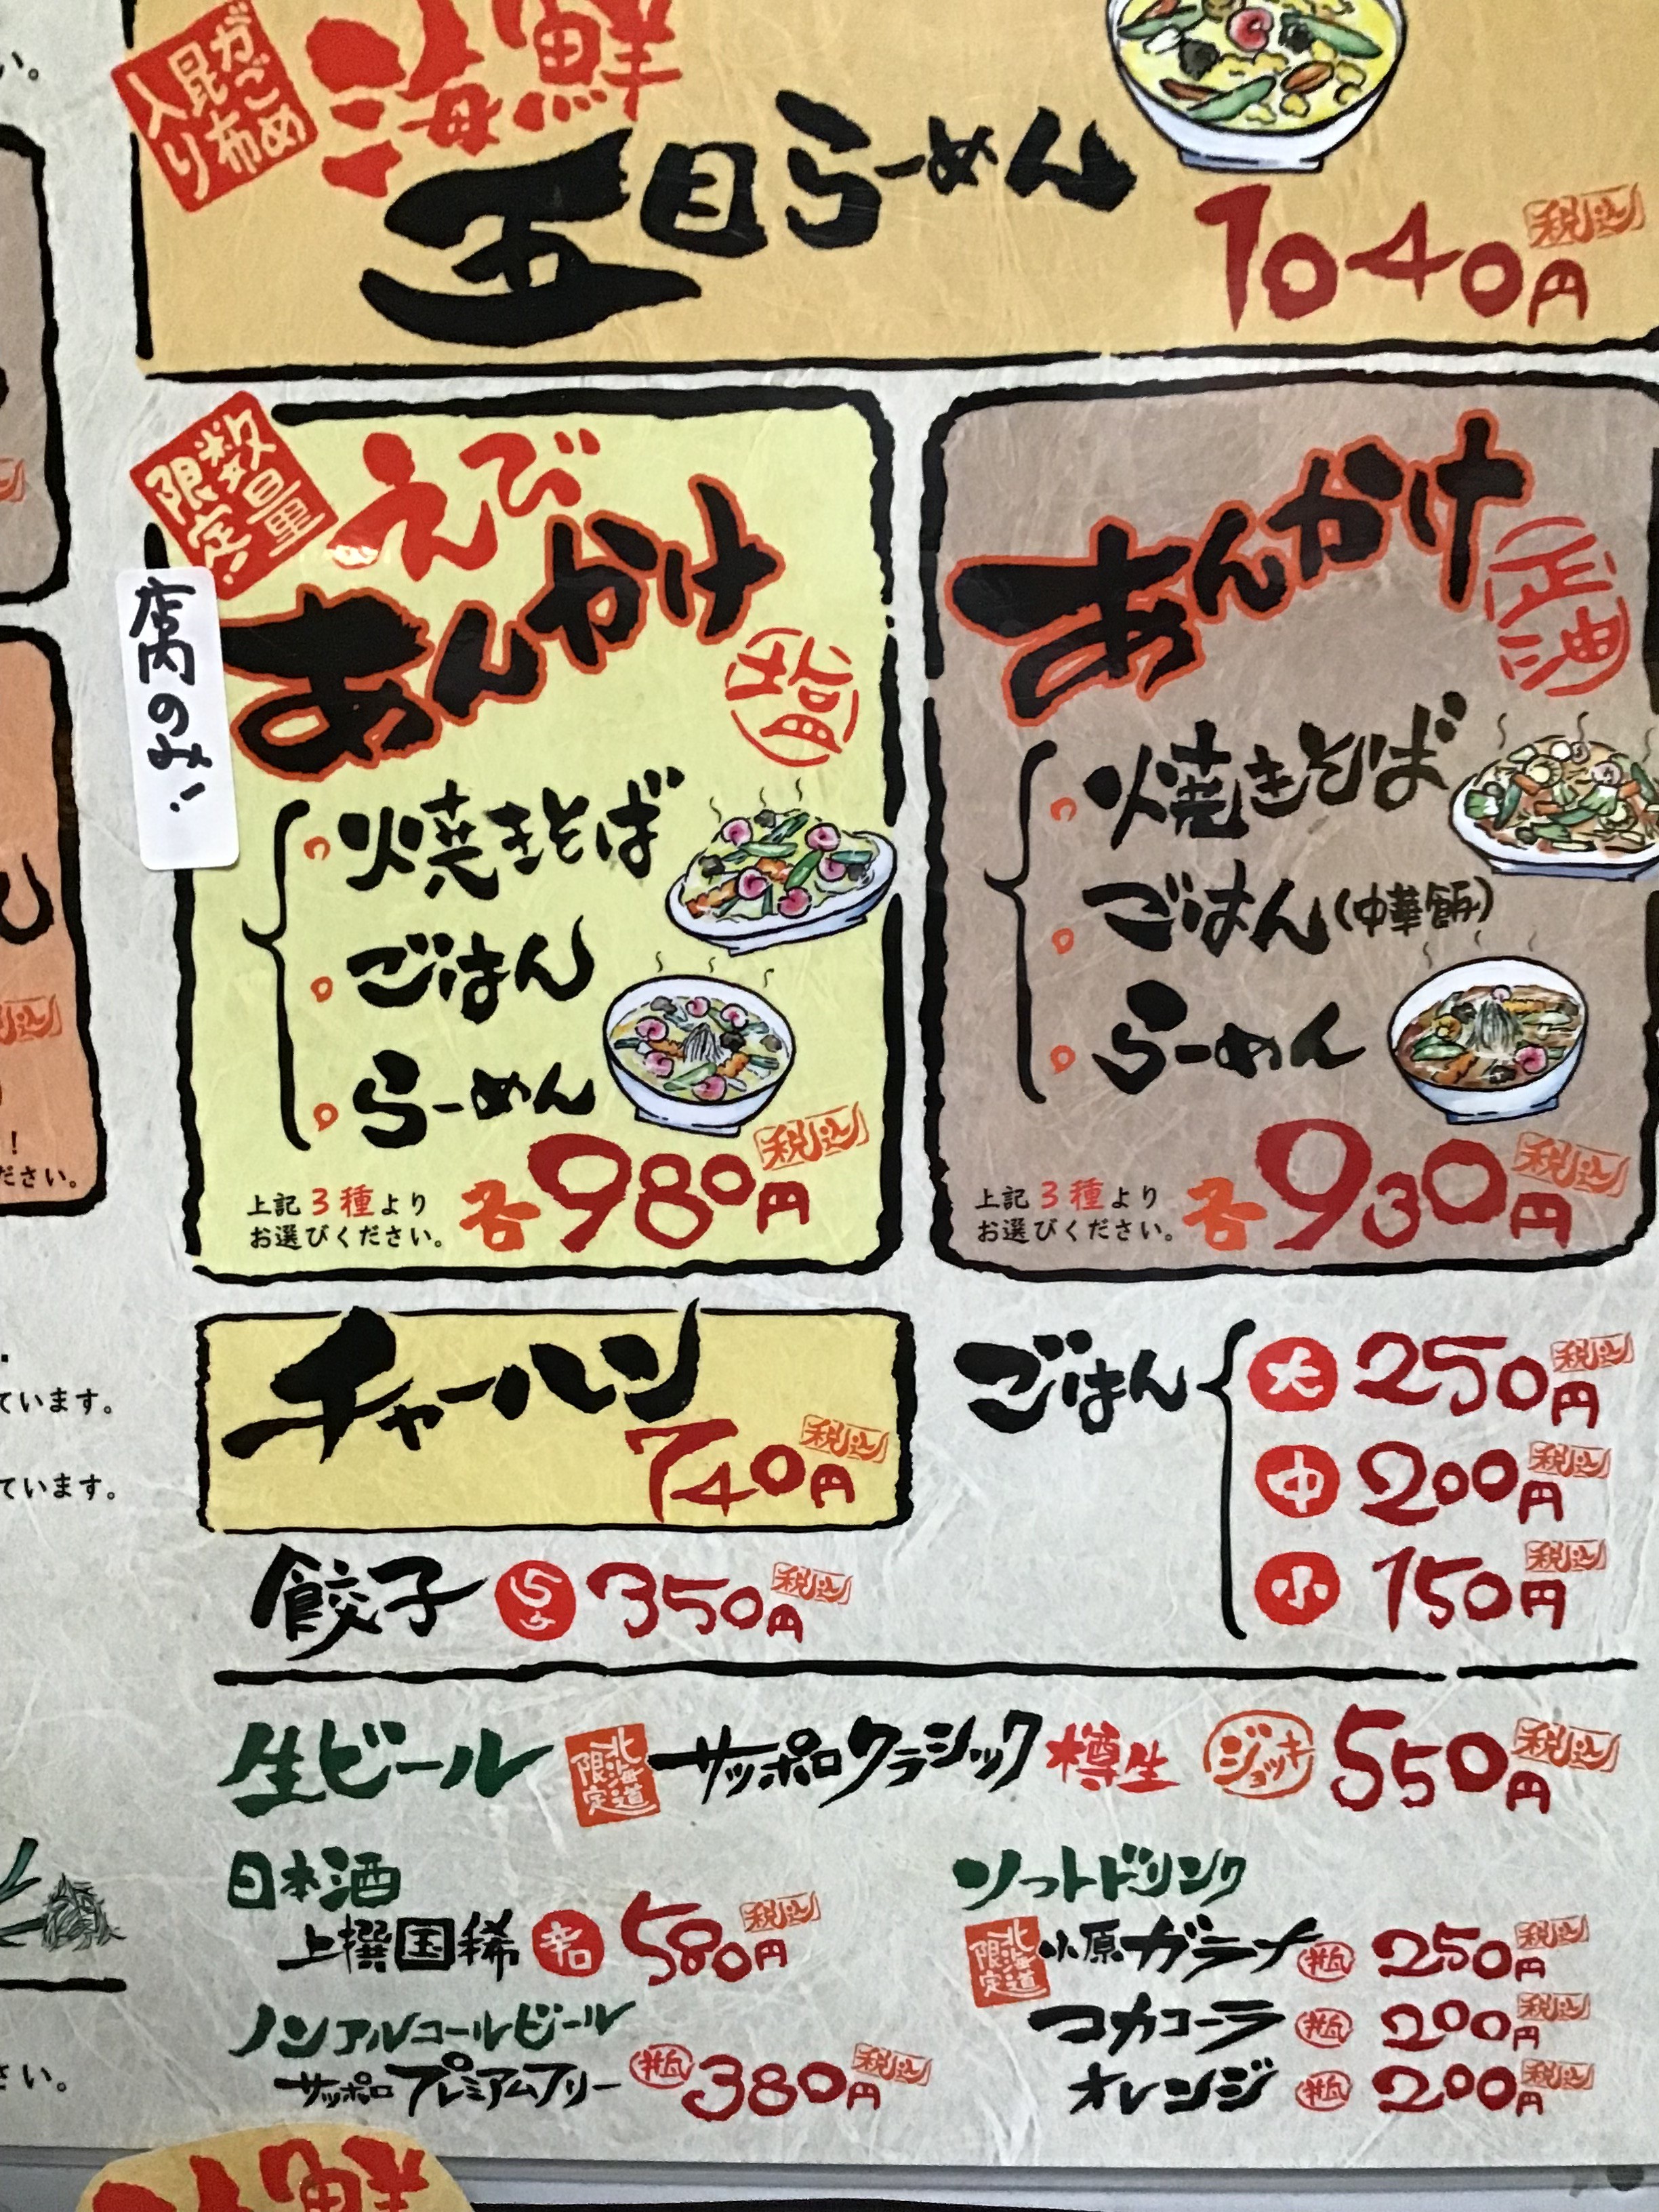 がごめ
昆布
入り
海鮮
五目らーめん
1040円
税込
数量
限定!
店内のみ!
えび
あんかけ
塩
焼きそば
ごはん
らーめん
上記3種より
お選びください。
各980円
税込
あんかけ
正油
焼きそば
ごはん(中華飯)
らーめん
上記3種より
お選びください。
各930円
税込
チャーハン
740円
税込
餃子 5ヶ 350円 税込
ごはん
大 250円 税込
中 200円 税込
小 150円 税込
生ビール 北海道限定 サッポロクラシック 樽生 ジョッキ 550円 税込
日本酒
上撰国稀 580円 税込
ノンアルコールビール
サッポロプレミアムフリー 瓶 380円 税込
ソフトドリンク
北海道限定 小原ガラナ 瓶 250円 税込
コカコーラ 瓶 200円 税込
オレンジ 瓶 200円 税込
い。
税込
!
ださい。
ています。
ています。
さい。